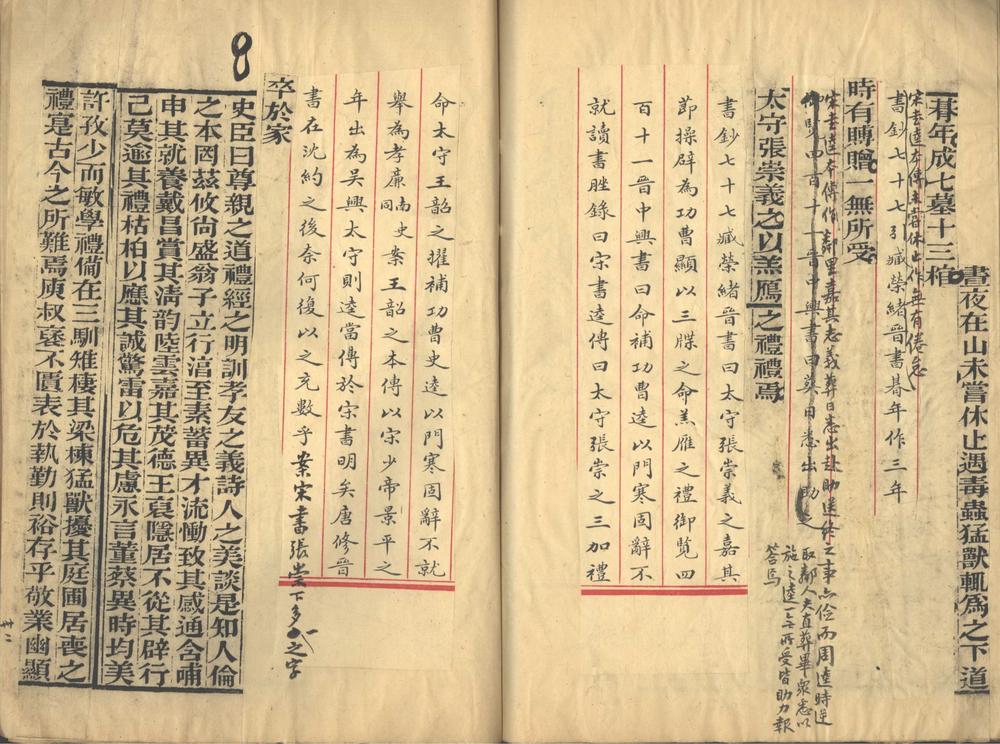 朞年成七墓十三棺
晝夜在山未嘗休止遇毒蟲猛獸輒爲之下道
宋書逵本傳未嘗休止作無有倦怠
書鈔七十七引臧榮緒晉書朞年作三年
時有賻贈一無所受
宋書逵本傳作鄰里嘉其志義葬日悉出赴助送終之事亦儉而周逵時逆
取鄰人夫直葬畢眾悉以
施之逵一無所受皆助力報
答焉
御覽四百十一晉中興書曰葬日悉出助之
太守張崇義之以羔鴈之禮禮焉
書鈔七十七臧榮緒晉書曰太守張崇義之嘉其
節操辟為功曹顯以三牒之命羔雁之禮御覽四
百十一晉中興書曰命補功曹逵以門寒固辭不
就讀書脞錄曰宋書逵傳曰太守張崇之三加禮
命太守王韶之擢補功曹史逵以門寒固辭不就
舉為孝廉南史同案王韶之本傳以宋少帝景平之
年出為吳興太守則逵當傳於宋書明矣唐修晉
書在沈約之後奈何復以之充數乎案宋書張崇下多一之字
卒於家
8
史臣曰尊親之道禮經之明訓孝友之義詩人之美談是知人倫
之本罔茲攸尚盛翁子立行淯至素蓄異才流慟致其感通含哺
申其就養戴昌賞其清韵陸雲嘉其茂德王裒隱居不從其辟行
己莫逾其禮枯柏以應其誠驚雷以危其慮永言董蔡異時均美
許孜少而敏學禮備在三馴雉棲其梁棟猛獸擾其庭圃居喪之
禮寔古今之所難焉庾叔裒不匱表於執勤則裕存乎敬業幽顯